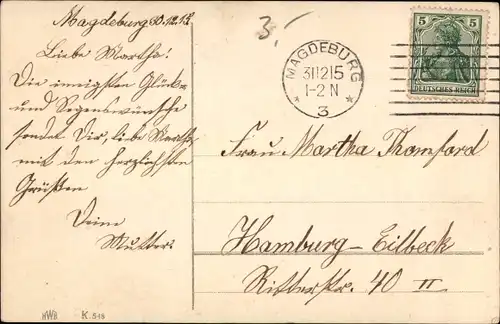 Magdeburg 30.12.12
3.-
Liebe Martha!
Die innigsten Glück-
und Segenswünsche
sendet Dir, liebe Martha
mit den herzlichsten
Grüßen
Deine
Mutter.
MAGDEBURG
311215
1-2 N
* 3 *
5 5
DEUTSCHES REICH
Frau Martha Thomford
Hamburg-Eilbeck
Ritterstr. 40 II
NWB K. 515